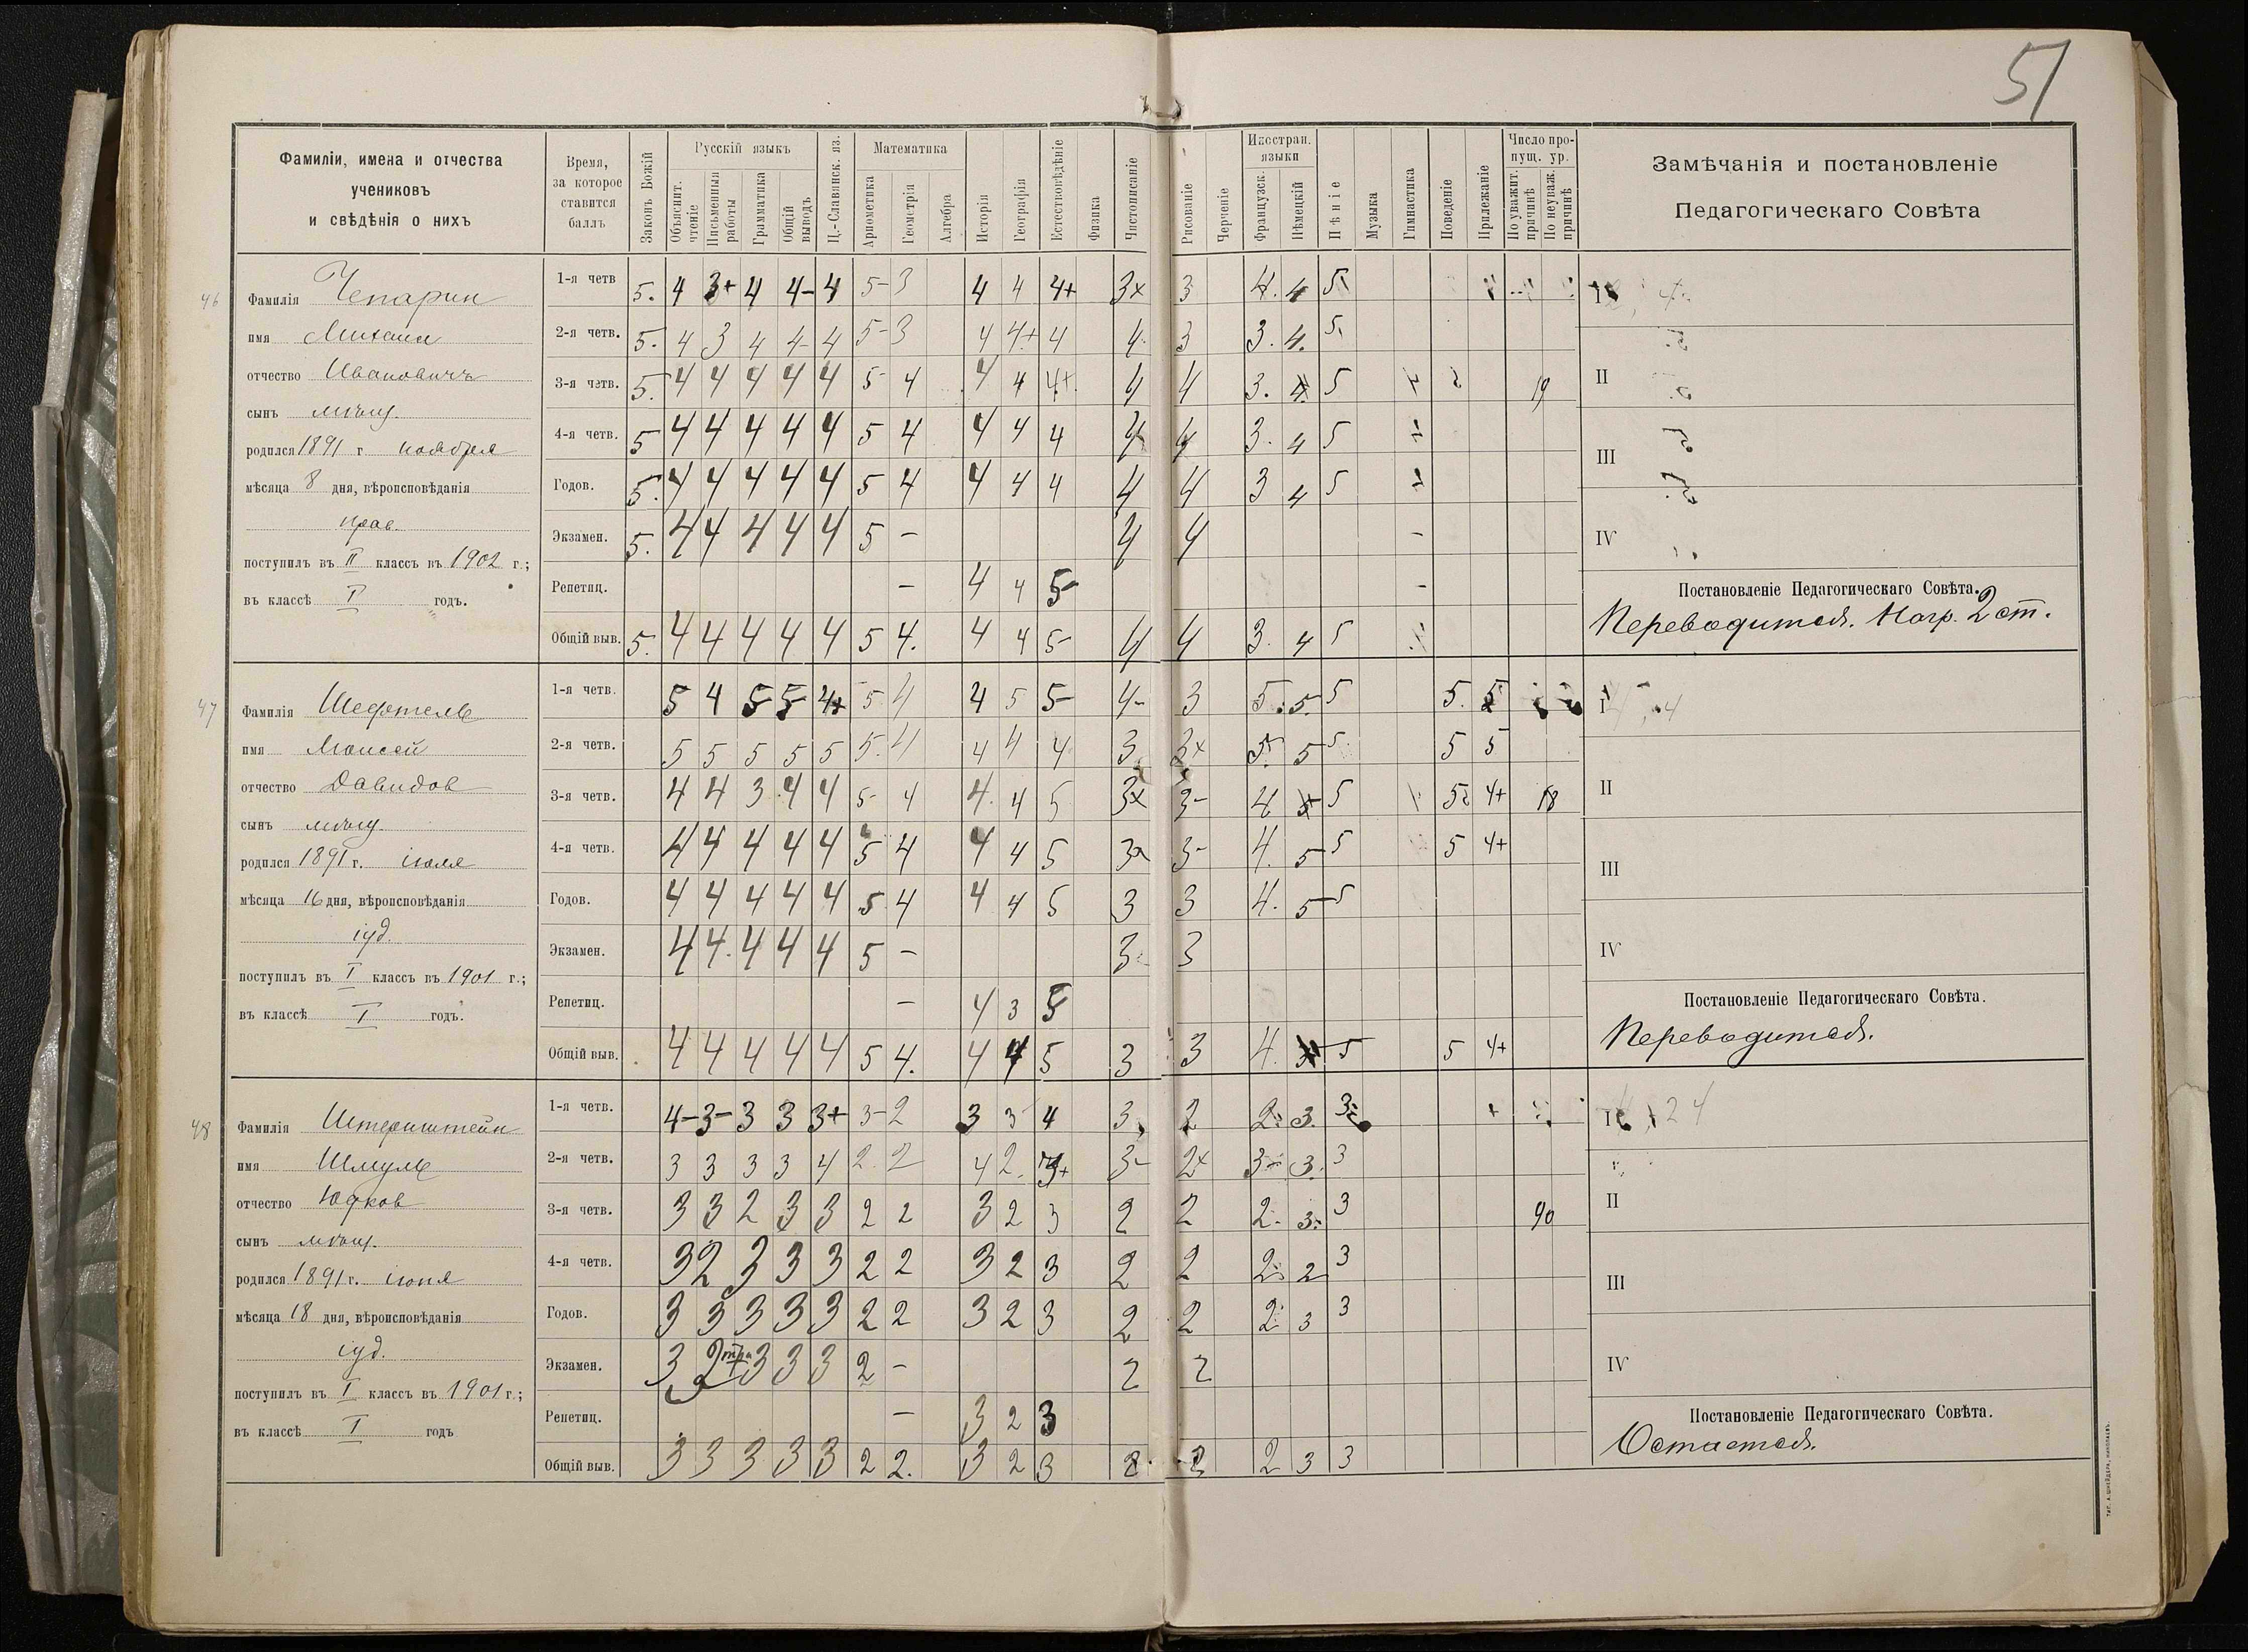 51
Фамиліи, имена и отчества
учениковъ
и свѣдѣнія о нихъ
Время,
за которое
ставится
баллъ
Законъ Божій
Русскій языкъ
Объяснит.
чтеніе
Письменныя
работы
Грамматика
Общій
выводъ
Ц.-Славянск. яз.
Математика
Ариөметика
Геометрія
Алгебра
Исторія
Географія
Естествовѣдѣніе
Физика
Чистописаніе
Рисованіе
Черченіе
Иностран.
языки
Французск.
Нѣмецкій
Пѣніе
Музыка
Гимнастика
Поведеніе
Прилежаніе
Число про-
пущ. ур.
По уважит.
причинѣ
По неуваж.
причинѣ
Замѣчанія и постановленіе
Педагогическаго Совѣта
46
Фамилія Чепарин
имя Михаил
отчество Ивановичъ
сынъ мѣщ.
родился 1891 г ноября
мѣсяца 8 дня, вѣроисповѣданія
прав.
поступилъ въ II классъ въ 1902 г.;
въ классѣ I годъ.
1-я четв 5. 4 3+ 4 4- 4 5- 3 4 4 4+ 3x 3 4. 4 5
2-я четв. 5. 4 3 4 4- 4 5- 3 4 4+ 4 4 3 3. 4. 5
3-я четв. 5. 4 4 4 4 4 5- 4 4 4 4+ 4 4 3. 4 5 19
4-я четв. 5 4 4 4 4 4 5 4 4 4 4 4 4 3. 4 5
Годов. 5. 4 4 4 4 4 5 4 4 4 4 4 4 3 4 5
Экзамен. 5. 4 4 4 4 4 5 – 4 4 –
Репетиц. – 4 4 5- –
Общій выв. 5. 4 4 4 4 4 5 4. 4 4 5- 4 4 3. 4 5
I
II
III
IV
Постановленіе Педагогическаго Совѣта.
Переводится. Нагр. 2 ст.
47
Фамилія Шефтель
имя Моисей
отчество Давидов
сынъ мѣщ.
родился 1891 г. іюля
мѣсяца 16 дня, вѣроисповѣданія
іуд.
поступилъ въ I классъ въ 1901 г.;
въ классѣ I годъ.
1-я четв. 5 4 5- 5- 4+ 5 4 4 5 5- 4- 3 5. 5. 5 5. 5
2-я четв. 5 5 5 5 5 5. 4 4 4 4 3 3x 5. 5 5 5 5
3-я четв. 4 4 3 4 4 5- 4 4. 4 5 3x 3- 4 5 5 4+ 18
4-я четв. 4 4 4 4 4 5 4 4 4 5 3 3- 4. 5 5 5 4+
Годов. 4 4 4 4 4 5 4 4 4 5 3 3 4. 5 5
Экзамен. 4 4. 4 4 4 5 – 3 3
Репетиц. – 4 3 5
Общій выв. 4 4 4 4 4 5 4. 4 4 5 3 3 4. 5 5 4+
I
II
III
IV
Постановленіе Педагогическаго Совѣта.
Переводится.
48
Фамилія Штернштейн
имя Шмуль
отчество Юдков
сынъ мѣщ.
родился 1891 г. іюня
мѣсяца 18 дня, вѣроисповѣданія
іуд.
поступилъ въ I классъ въ 1901 г.;
въ классѣ I годъ
1-я четв. 4- 3- 3 3 3+ 3- 2 3 3 4 3 2 2 3. 3
2-я четв. 3 3 3 3 4 2. 2 4 2. 3- 2x 3- 3. 3
3-я четв. 3 3 2 3 3 2 2 3 2 3 2 2 2. 3 3 90
4-я четв. 3 2 3 3 3 2 2 3 2 3 2 2 2 2 3
Годов. 3 3 3 3 3 2 2 3 2 3 2 2 2 3 3
Экзамен. 3 2 3 3 3 2 – 2 2
Репетиц. – 3 2 3
Общій выв. 3 3 3 3 3 2 2. 3 2 3 2 2 2 3 3
I
II
III
IV
Постановленіе Педагогическаго Совѣта.
Остается.
ТИП. А. ШНЕЙДЕРА, НИКОЛАЕВЪ.